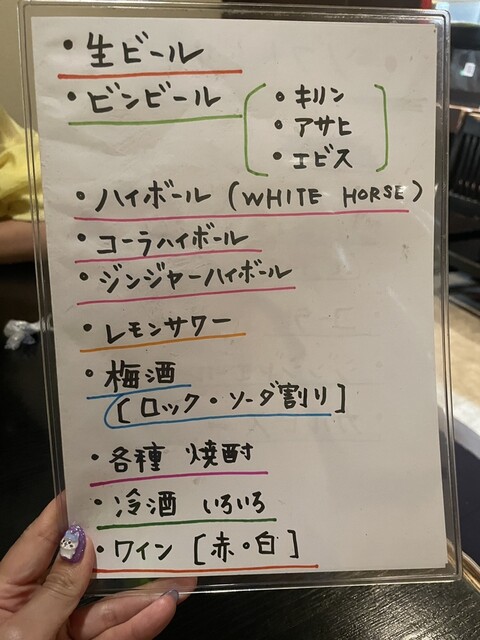 ・生ビール
・ビンビール
・キリン
・アサヒ
・エビス
・ハイボール (WHITE HORSE)
・コーラハイボール
・ジンジャーハイボール
・レモンサワー
・梅酒
[ロック・ソーダ割り]
・各種 焼酎
・冷酒 いろいろ
・ワイン [赤・白]